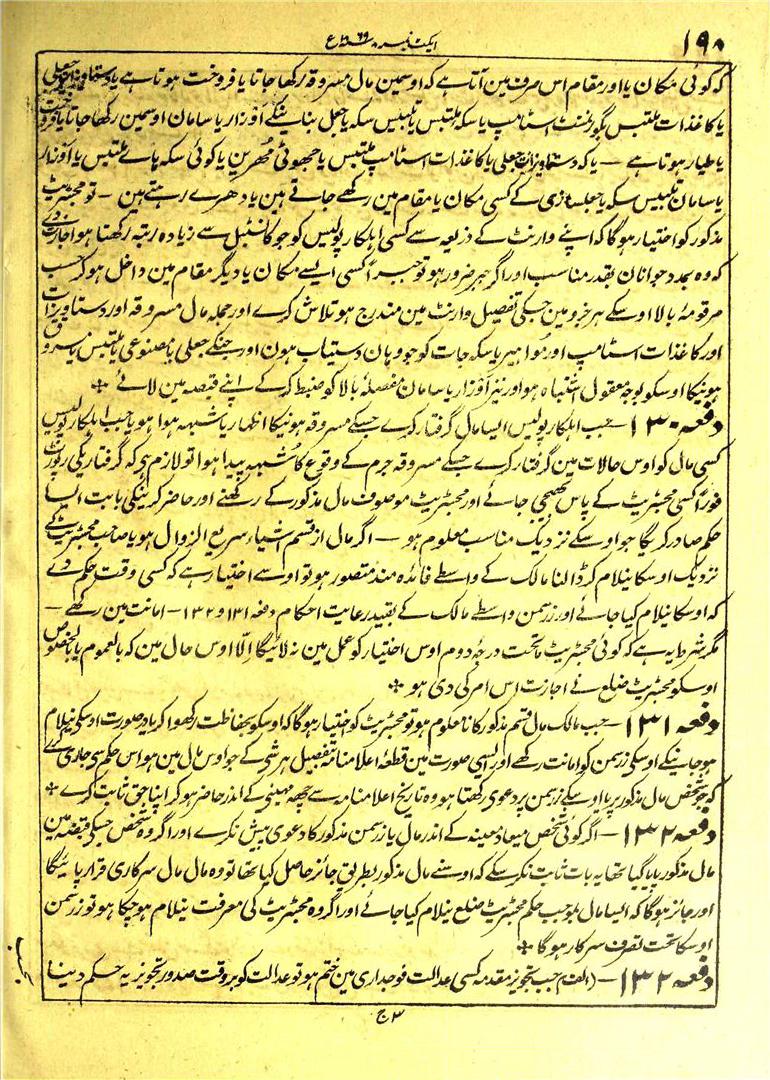 ۱۹۰
ایکٹ نمبر ۸ سنہ ۶۹ ۱۸ ع
کہ کوئی مکان یا اور مقام اس صرف مین آتا ہے کہ اوسمین مال مسروقہ رکھا جاتا یا فروخت ہوتا ہے یا دستاویزات جعلی
یا کاغذات ملتبس بگورنمنٹ اسٹامپ یا سکہ ملتبس یا تلبیس سکہ یا جعل بنانیکے اوزار یا سامان اوسمین رکھا جاتا یا فروخت
یا طیار ہوتا ہے — یا کہ دستاویزات جعلی یا کاغذات اسٹامپ ملتبس یا جھوٹی مُھرین یا کوئی سکہ ہائے ملتبس یا اوزار
یا سامان تلبیس سکہ یا جعلسازی کے کسی مکان یا مقام مین رکھے جاتے ہین یا دھرے رہتے ہین — تو مجسٹریٹ
مذکور کو اختیار ہوگا کہ اپنے وارنٹ کے ذریعہ سے کسی اہلکار پولیس کو جو کانسٹبل سے زیادہ رتبہ رکھتا ہو اجازت دے
کہ وہ بمدد جوانان بقدر مناسب اور اگر جبر ضرور ہو تو جبراً کسی ایسے مکان یا دیگر مقام مین داخل ہو کر حسب
مرقومۂ بالا اوسکے ہر جزو مین جسکی تفصیل وارنٹ مین مندرج ہو تلاش کرے اور جملہ مال مسروقہ اور دستاویزات
اور کاغذات اسٹامپ اور مُواہیر یا سکہ جات کو جو وہان دستیاب ہون اور جنکے جعلی یا مصنوعی یا ملتبس یا مسروق
ہونیکا اوسکو بوجہ معقول اشتباہ ہو اور نیز اوزار یا سامان مفصلۂ بالا کو ضبط کر کے اپنے قبضہ مین لائے ❖
دفعہ ۱۳۰ — جب اہلکار پولیس ایسا مال گرفتار کرے جسکے مسروقہ ہونیکا اظہار یا شبہہ ہوا ہو یا جب اہلکار پولیس
کسی مال کو اوس حالات مین گرفتار کرے جسکے مسروقہ جرم کے وقوع کا شُبہہ پیدا ہوا تو لازم ہی کہ گرفتاریکی رپورٹ
فوراً کسی مجسٹریٹ کے پاس بھیجی جائے اور مجسٹریٹ موصوف مال مذکور کے رکھنے اور حاضر کرنیکی بابت ایسا
حکم صادر کریگا جو اوسکے نزدیک مناسب معلوم ہو — اگر مال از قسم اشیاء سریع الزوال ہو یا صاحب مجسٹریٹ کے
نزدیک اوسکا نیلام کر ڈالنا مالک کے واسطے فائدہ مند متصور ہو تو اوسے اختیار ہے کہ کسی وقت حکم دے
کہ اوسکا نیلام کیا جائے اور زر ثمن واسطے مالک کے بقید رعایت احکام دفعہ ۱۳۱ و ۱۳۲ — امانت مین رکھے —
مگر شرط یہ ہے کہ کوئی مجسٹریٹ ماتحت درجۂ دوم اوس اختیار کو عمل مین نہ لائیگا اِلّا اوس حال مین کہ بالعموم یا بالخصوص
اوسکو مجسٹریٹ ضلع نے اجازت اس امر کی دی ہو ❖
دفعہ ۱۳۱ — جب مالک مال قسم مذکور کا نامعلوم ہو تو مجسٹریٹ کو اختیار ہوگا کہ اوسکو بحفاظت رکھوا کر یا در صورت اوسکی نیلام
ہو جانیکے اوسکی زر ثمن کو امانت رکھے اور ایسی صورت مین قطعۂ اعلامنامہ بتفصیل ہر شی کے جو اوس مال مین ہو اس حکم سی جاری کرے
کہ جو شخص مال مذکور پر یا اوسکے زر ثمن پر دعوی رکھتا ہو وہ تاریخ اعلامنامہ سے چھہ مہینی کے اندر حاضر ہو کر اپنا حق ثابت کرے ❖
دفعہ ۱۳۲ — اگر کوئی شخص میعاد معینہ کے اندر مال یا زر ثمن مذکور کا دعوی پیش نکرے اور اگر وہ شخص جسکی قبضہ مین
مال مذکور پایا گیا تھا یہ بات ثابت نکر سکے کہ اوسنے مال مذکور بطریق جائز حاصل کیا تھا تو وہ مال مال سرکاری قرار پائیگا
اور جائز ہوگا کہ ایسا مال بموجب حکم مجسٹریٹ ضلع نیلام کیا جائے اور اگر وہ مجسٹریٹ کی معرفت نیلام ہو چکا ہو تو زر ثمن
اوسکا تحت تصرف سرکار ہوگا ❖
دفعہ ۱۳۲ — (الف) جب تجویز مقدمہ کسی عدالت فوجداری مین ختم ہو تو عدالت کو بروقت صدور تجویز یہ حکم دینا
ج ۳